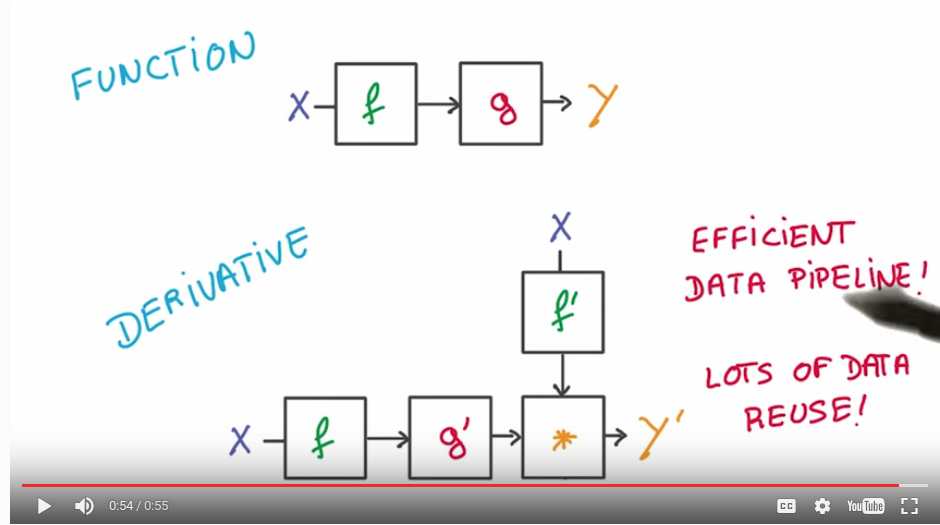 FUNCTION
X f g Y
DERIVATIVE
X
f'
EFFICIENT
DATA PIPELINE!
LOTS OF DATA
REUSE!
X f g' * Y'
0:54 / 0:55
CC YouTube